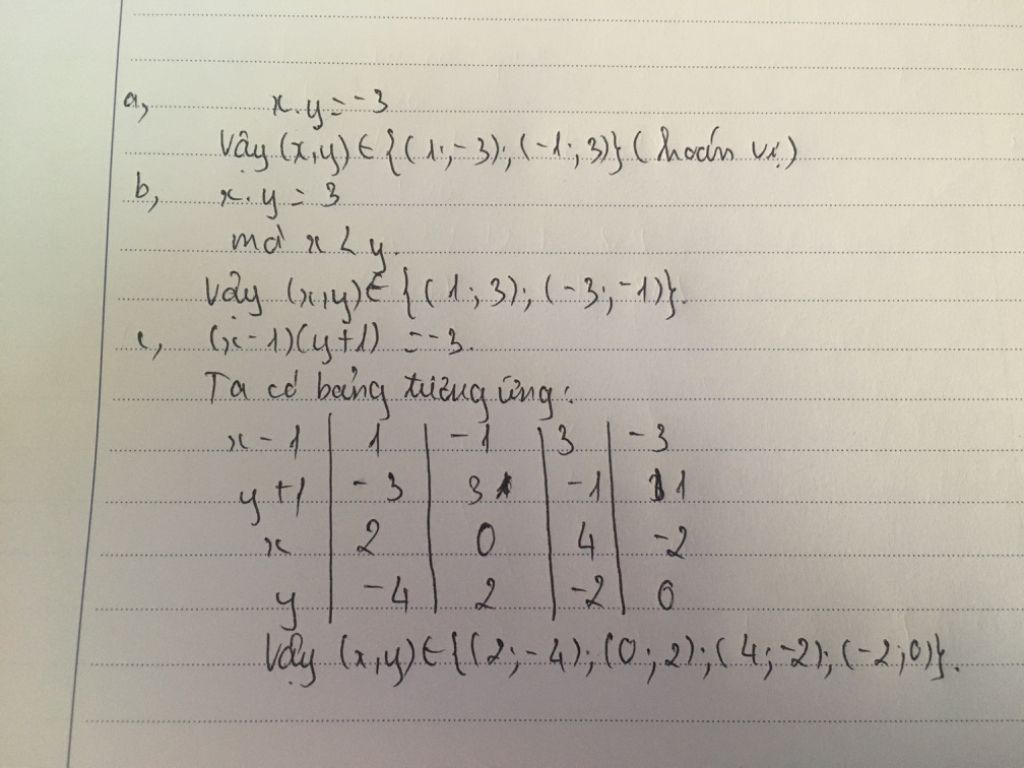 a, x.y = -3
Vậy (x,y) ∈ {(1;-3); (-1; 3)} (hoán vị)
b, x.y = 3
mà x < y.
Vậy (x,y) ∈ {(1; 3); (-3; -1)}.
c, (x-1)(y+1) = -3.
Ta có bảng tương ứng:
x-1 | 1 | -1 | 3 | -3
y+1 | -3 | 3 | -1 | 1
x | 2 | 0 | 4 | -2
y | -4 | 2 | -2 | 0
Vậy (x,y) ∈ {(2;-4); (0; 2); (4;-2); (-2;0)}.